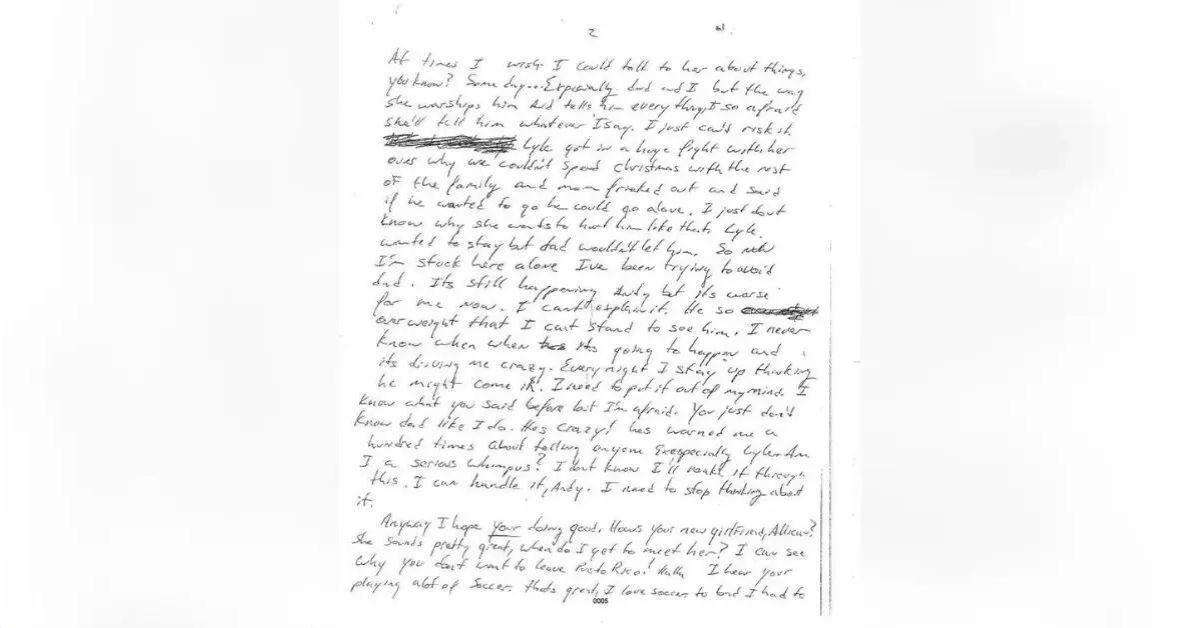 2
At times I wish I could talk to her about things,
you know? Some day... Expecially dad and I but the way
she worships him and tells him everything, I so afraid
she'll tell him whatever I say. I just cant risk it
Lyle got in a huge fight with her
over why we couldn't spend Christmas with the rest
of the family and mom friaked out and said
if he wanted to go he could go alone. I just dont
know why she wants to hurt him like that. Lyle
wanted to stay but dad wouldn't let him. So now
I'm stuck here alone I've been trying to avoid
dad. Its still happening Andy but its worse
for me now. I cant explain it. He so
overweight that I cant stand to see him. I never
know when when its going to happen and
its driving me crazy. Every night I stay up thinking
he might come in. I need to put it out of my mind. I
know what you said before but I'm afraid. You just don't
know dad like I do. Hes crazy! hes warned me a
hundred times about telling anyone Exespecially Lyle. Am
I a serious whimpus? I dont know I'll make it through
this. I can handle it, Andy. I need to stop thinking about
it.
Anyway I hope your doing good. Hows your new girlfriend,
She sounds pretty great, when do I get to meet her? I can see
why you dont want to leave Puerto Rico! Haha I hear your
playing alot of Soccer. thats great, I love soccer to but I had to
0005